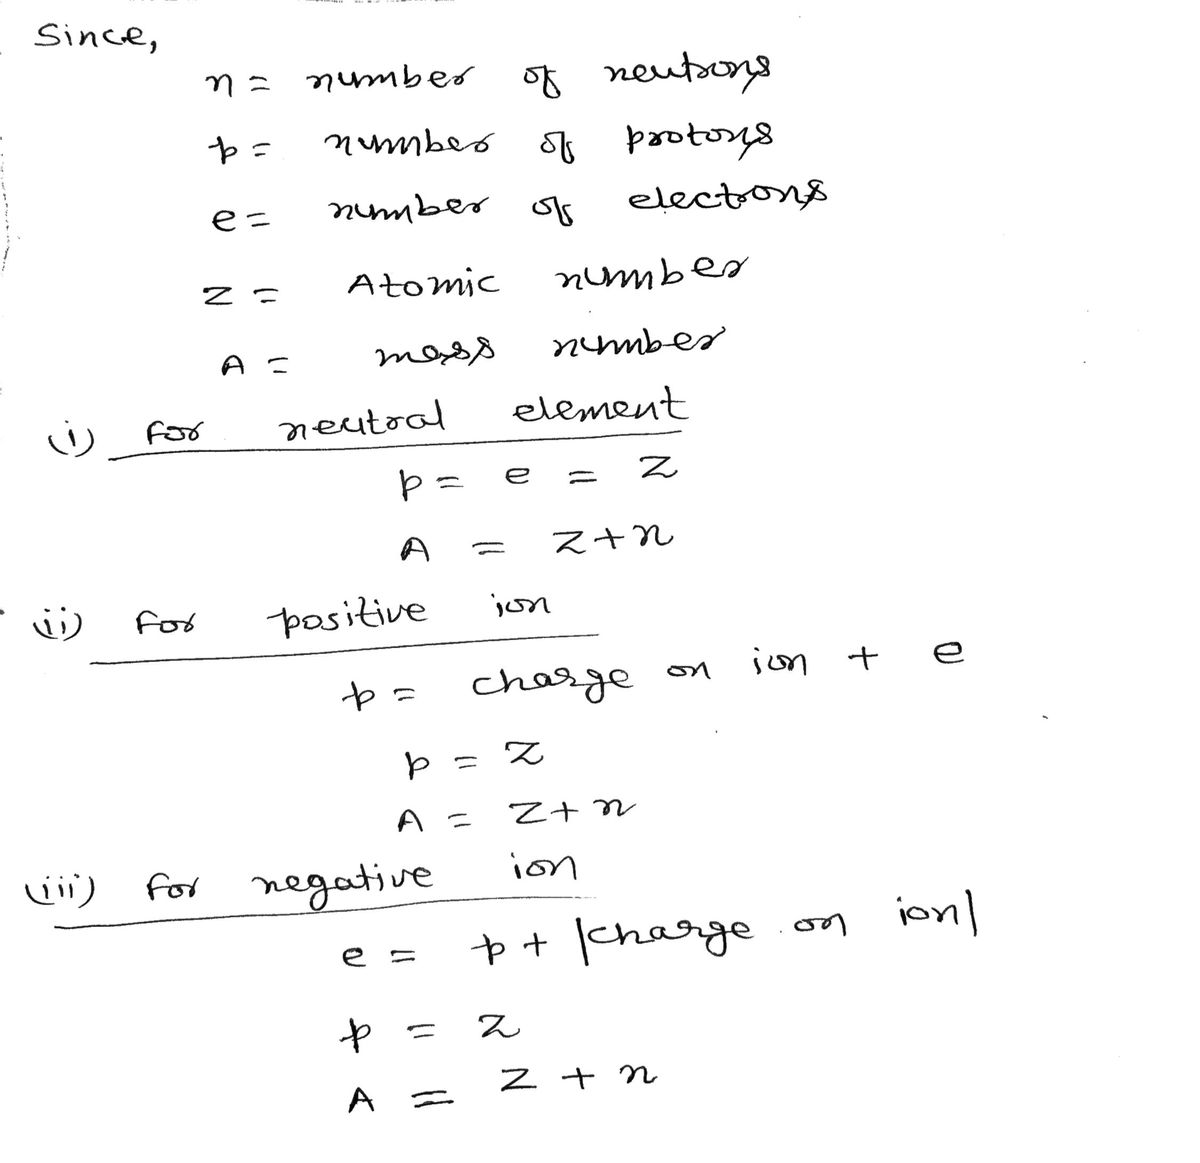 Since,
n = number of neutrons
p = number of protons
e = number of electrons
Z = Atomic number
A = mass number
(i) for neutral element
p = e = Z
A = Z+n
(ii) for positive ion
p = charge on ion + e
p = Z
A = Z+n
(iii) for negative ion
e = p + |charge on ion|
p = Z
A = Z + n